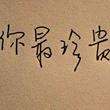 你最珍贵